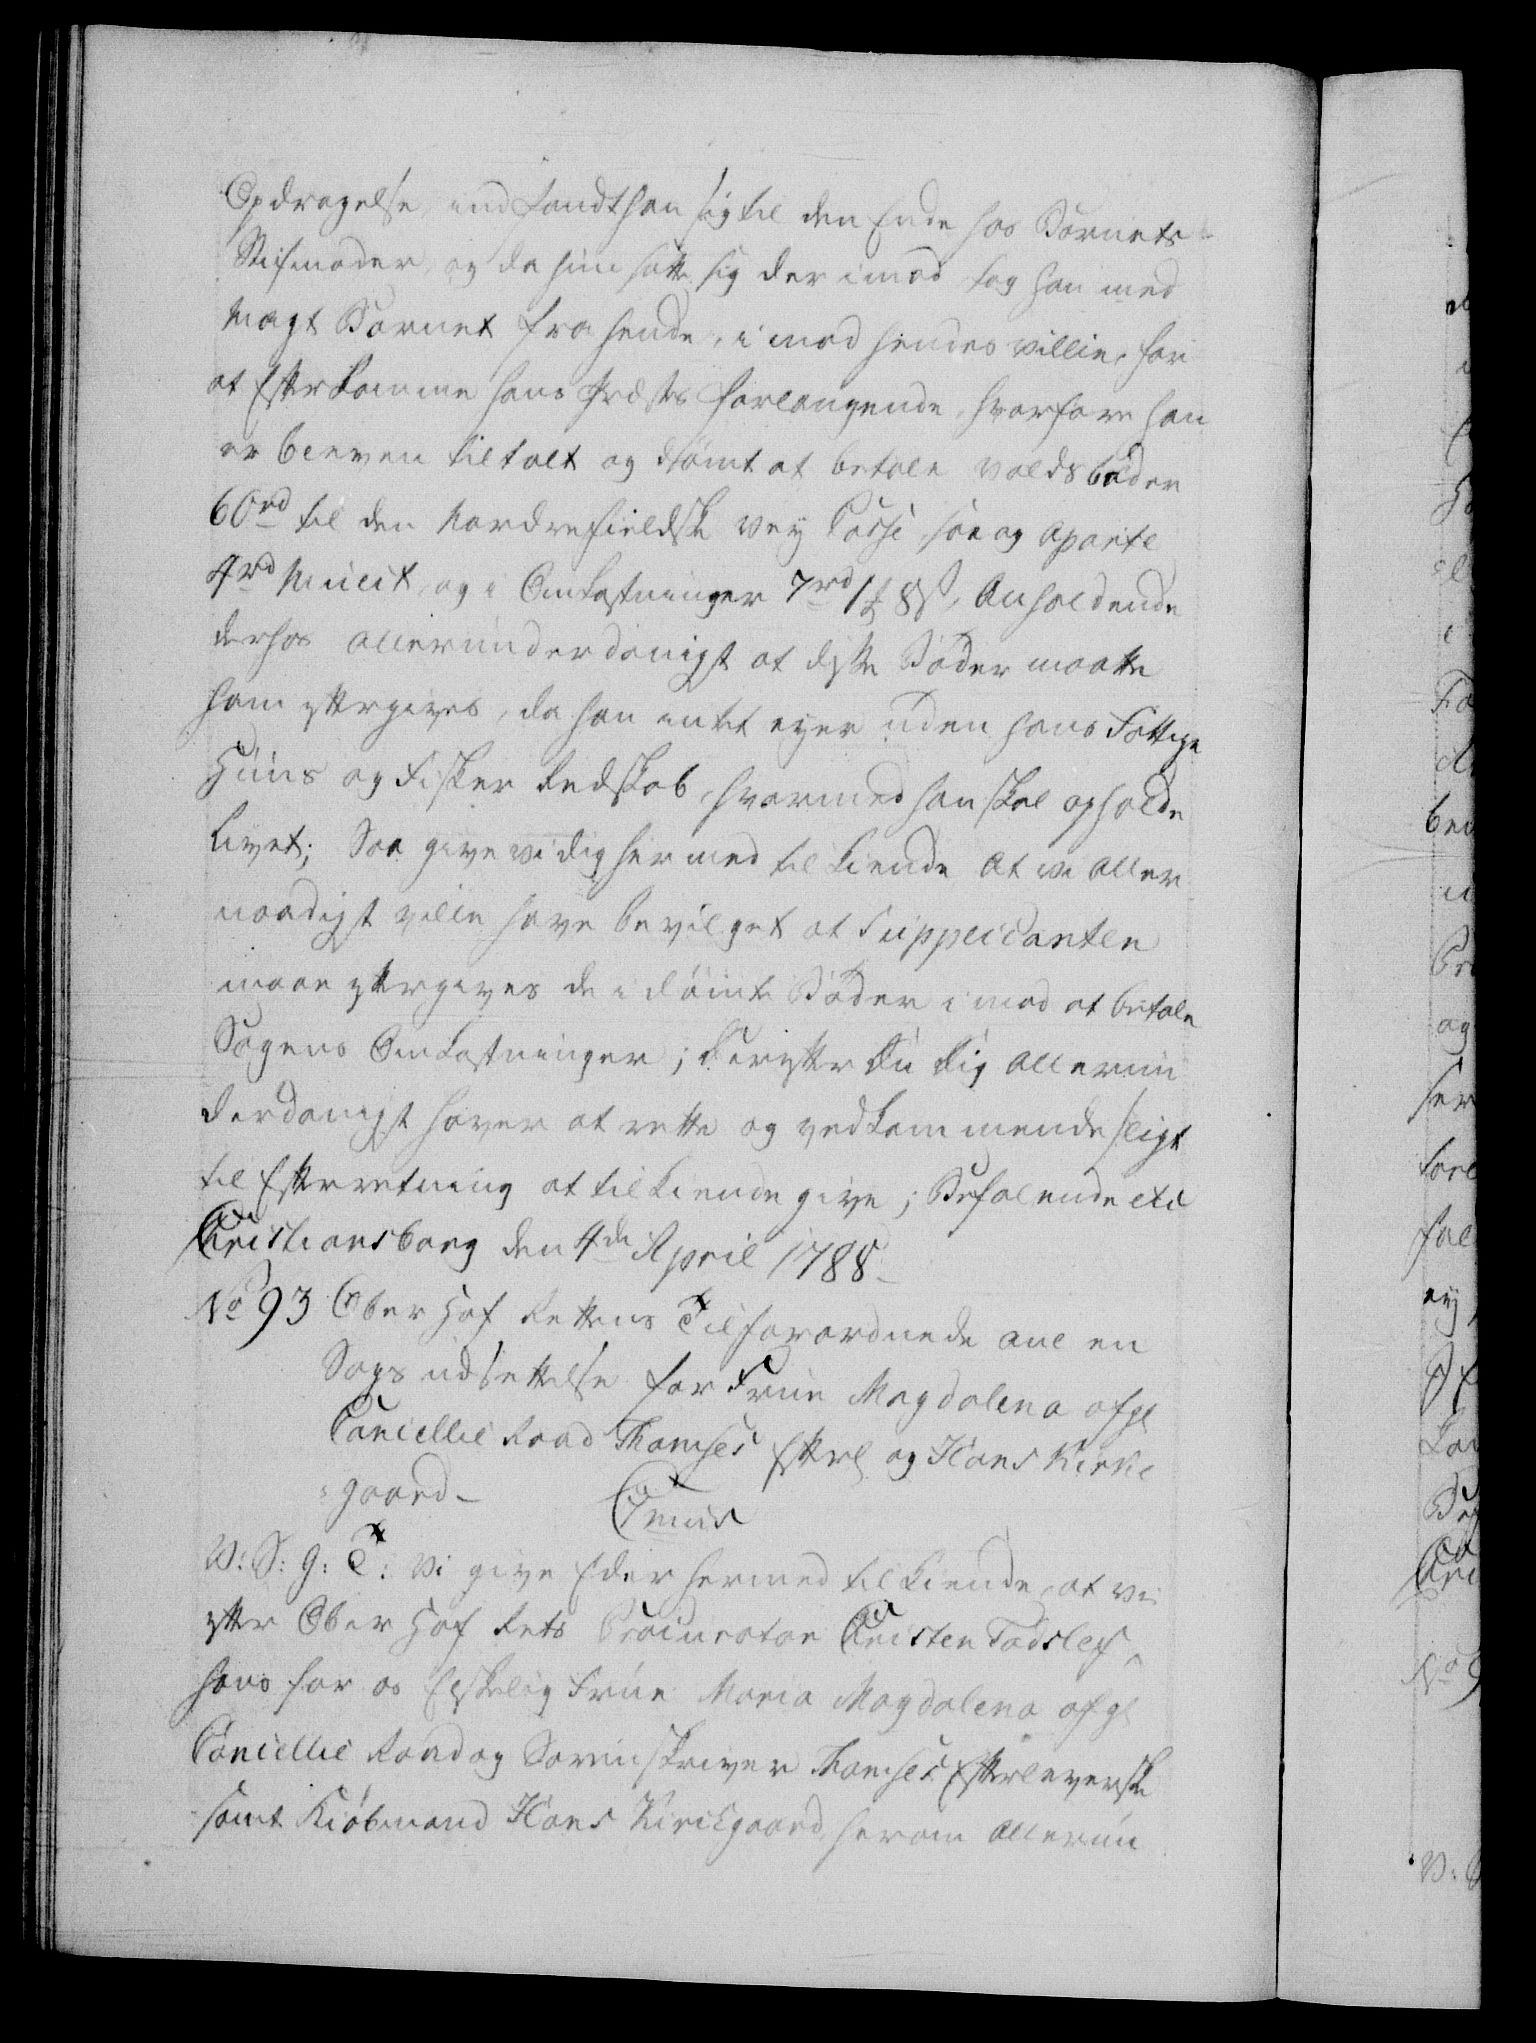 Opdragelse, ind fandt han sig til den Ende hos Barnets
Stifmoder, og da hun satte sig der imod tog han med
Magt Barnet fra hende, i mod hendes villie, for
at Efterkomme hans Præstes forlangende, hvorfore han
er bleven tiltalt og dømt at betale voldsbøder
60 rd til den Nordrefieldske Vey Casse, saa og aparte
4 rd Mulct, og i Omkostninger 7 rd 1 ℔ 8 ß, Anholdende
derhos allerunderdanigst at disse Bøder maatte
ham eftergives, da han intet eyer uden hans Fattige
Huus og Fisker Redskab, hvormed han skal opholde
Livet; Saa give vi dig hermed tilkiende At vi aller
naadigst ville have bevilget at Supplicanten
maae eftergives de idømte Bøder i mod at betale
Sagens Omkostninger; Derefter Du dig allerun
derdanigst haver at rette og vedkommende sligt
til Efterretning at tilkiende give; Befalende etc
Christiansborg den 4de April 1788
No 93 Ober Hof Rettens Tilforordnede anl en
Sags udsettelse for Frue Magdalena afgl
Cancellie Raad Thamses Efterl og Hans Kirke
gaard
Cmus
V: S: G: T: Vi give Eder hermed tilkiende, at vi
efter Ober Hof Rets Procurator Christen Fadslef,
hans for os Elskelig Frue Maria Magdalena afgl
Cancellie Raad og Sorenskriver Thamses Efterleverske
samt Kiøbmand Hans Kirckgaard, herom Allerun